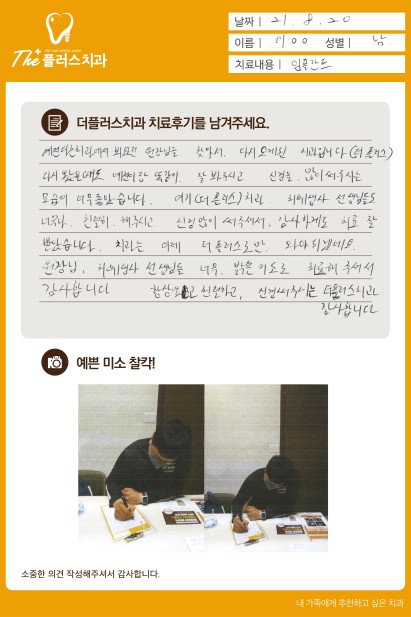 날짜 | 21. 8. 20
이름 | 이OO 성별 | 남
치료내용 | 임플란트
The+ 플러스치과
더플러스치과 치료후기를 남겨주세요.
치과에서 뵈었던 원장님을 찾아서 다시 오게된 치과입니다 (더플러스)
다시 왔을때도 예전과 똑같이 잘 봐주시고 신경을 많이 써주시는
모습이 너무 좋았습니다. 여기 (더플러스) 치과 치위생사 선생님들도
너무나 친절히 해주시고 신경 많이 써주셔서 감사하게도 치료 잘
받았습니다. 치과는 이제 더플러스로만 와야 되겠네요.
원장님, 치위생사 선생님들 너무 밝은 미소로 치료해 주셔서
감사합니다. 항상 친절하고, 신경써주시는 더플러스치과
감사합니다
예쁜 미소 찰칵!
소중한 의견 작성해주셔서 감사합니다.
내 가족에게 추천하고 싶은 치과